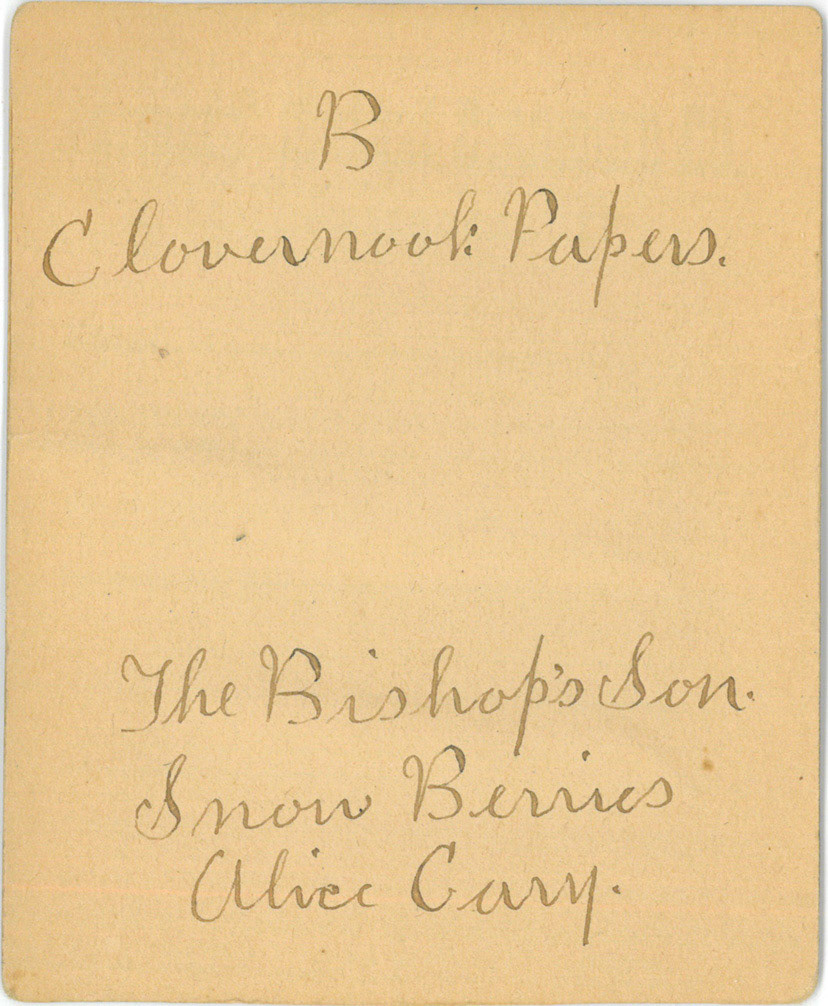 B
Clovernook Papers.
The Bishop's Son.
Snow Berries
Alice Cary.